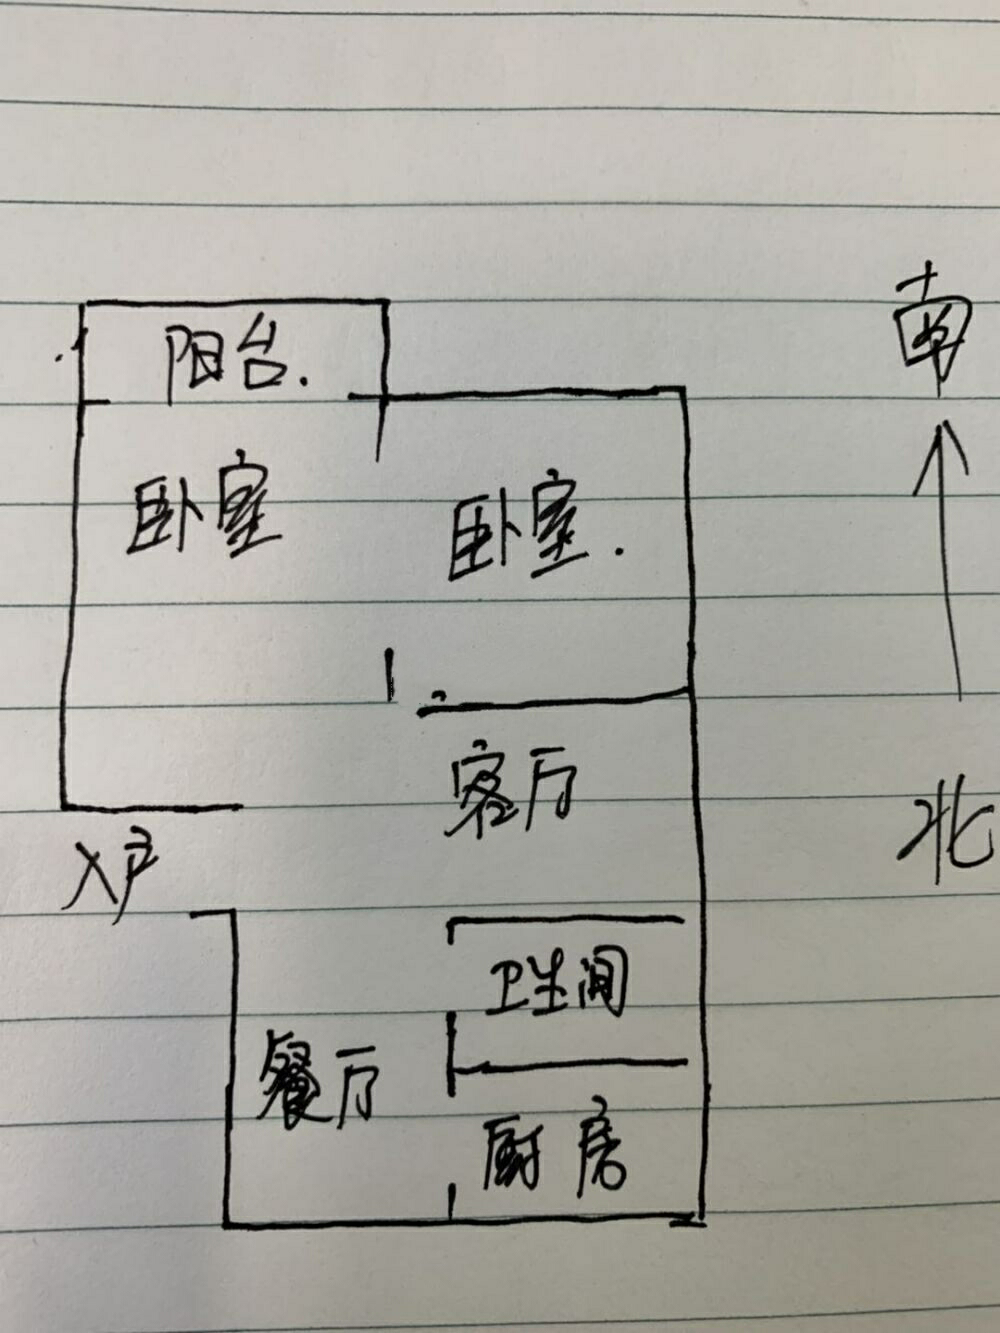 南
阳台.
卧室
卧室.
客厅
北
入户
卫生间
餐厅
厨房